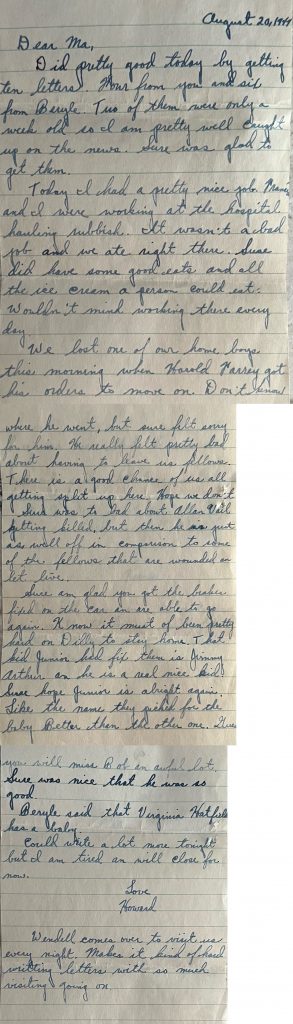 August 20, 1944
Dear Ma,
I did pretty good today by getting
ten letters. Four from you and six
from Beryle. Two of them were only a
week old so I am pretty well caught
up on the news. Sure was glad to
get them.
Today I had a pretty nice job.
and I were working at the hospital
hauling rubbish. It wasn't a bad
job and we ate right there. Sure
did have some good eats and all
the ice cream a person could eat.
Wouldn't mind working there every
day.
We lost one of our home boys
this morning when Harold got
his orders to move on. Don't know
where he went, but sure felt sorry
for him. He really felt pretty bad
about having to leave us fellows.
There is a good chance of us all
getting split up here. Hope we don't
Sure was to bad about Allen
getting killed, but then he is just
as well off in comparison to some
of the fellows that are wounded an
let live.
Sure am glad you got the brakes
fixed on the car an are able to go
again. Know it must of been pretty
hard on Dilly to stay home. That
kid Junior had fix them is Jimmy
Arthur an he is a real nice kid.
Sure hope Junior is alright again.
Like the name they picked for the
baby Better than the other one. Guess
you will miss Bob an awful lot.
Sure was nice that he was so
good.
Beryle said that Virginia Hatfield
has a baby.
Could write a lot more tonight
but I am tired an will close for
now.
Love
Howard
Wendell comes over to visit us
every night. Makes it kind of hard
writting letters with so much
visiting going on.